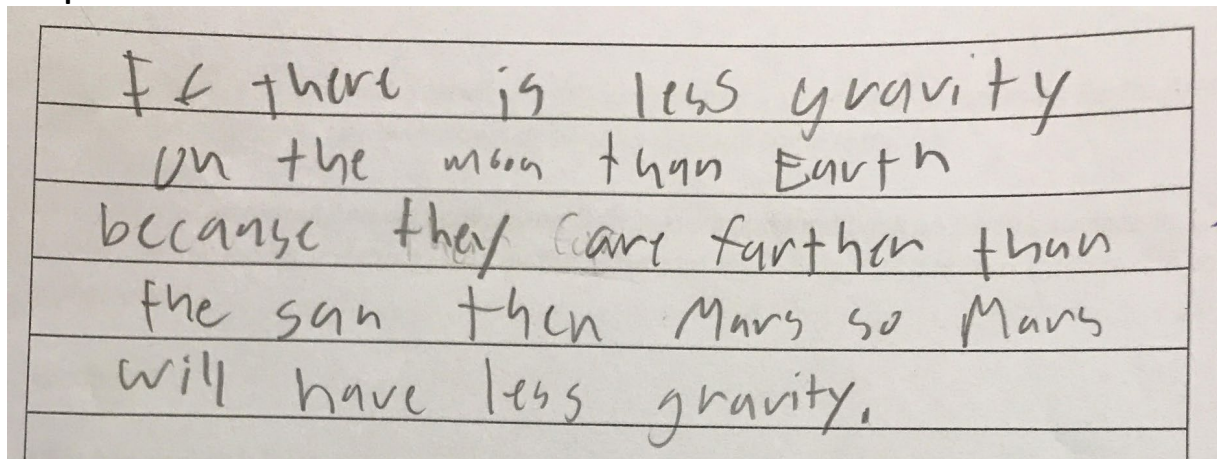 If there is less gravity
on the moon than Earth
because they are farther than
the sun then Mars so Mars
will have less gravity.